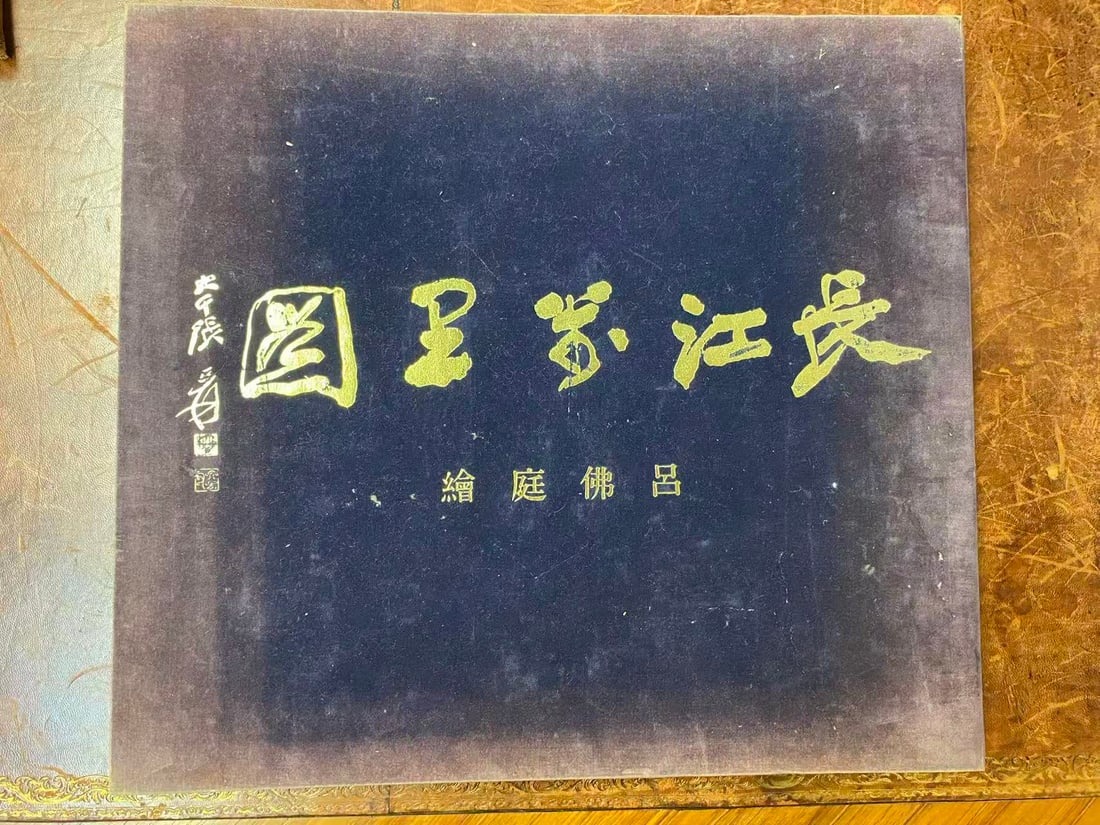 長江萬里圖
大千張爰
呂佛庭繪